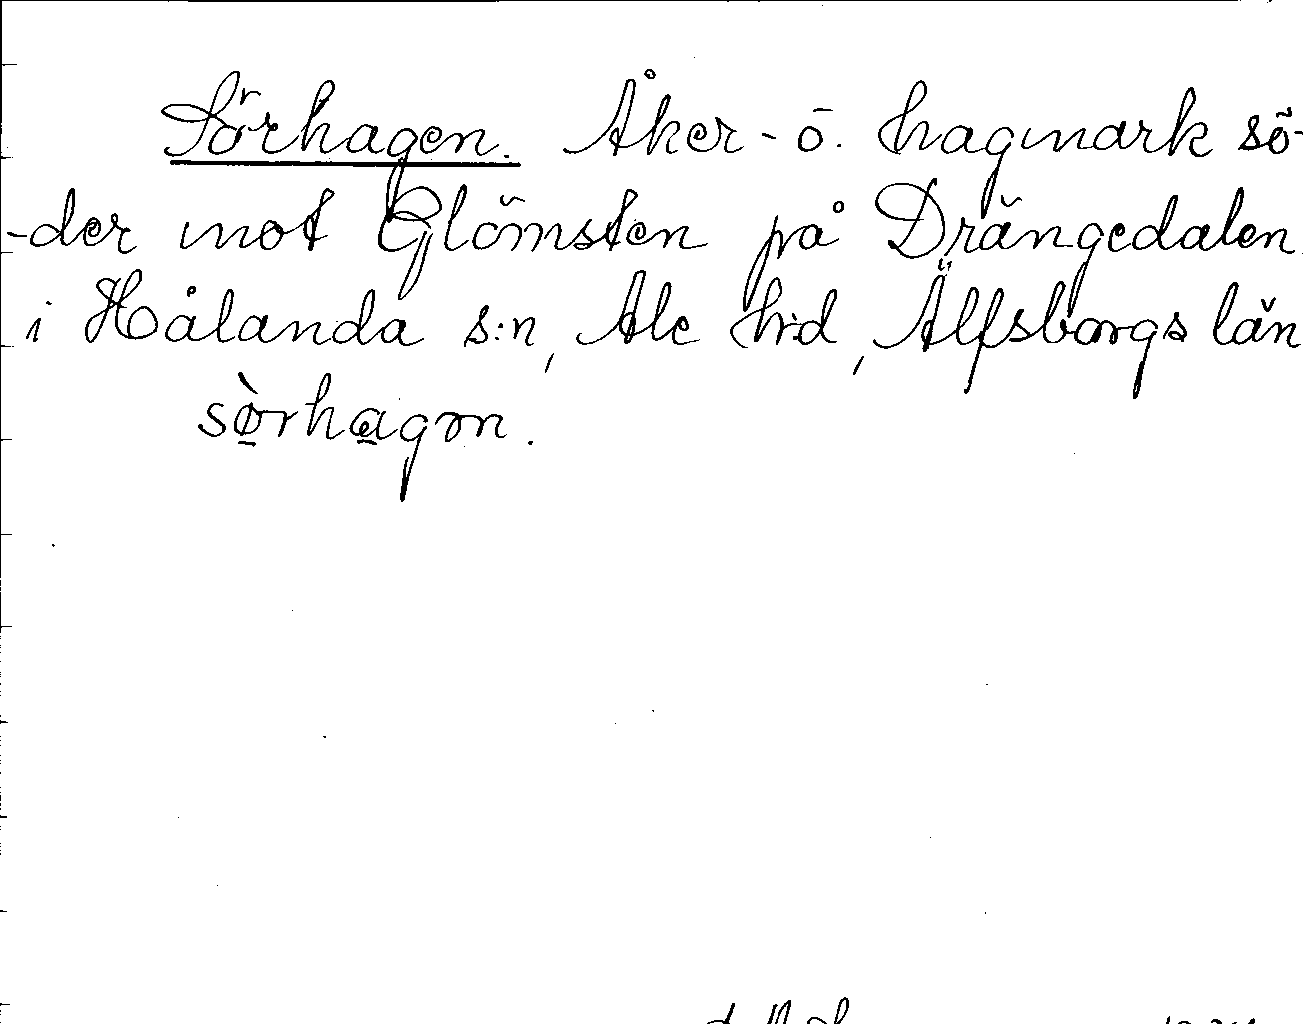 Sörhagen. Åker- ö. hagmark sö-
-der mot Glömsten på Drängedalen
i Hålanda s:n, Ale h:d, Älfsborgs län
sø̱̀rha̱gən.